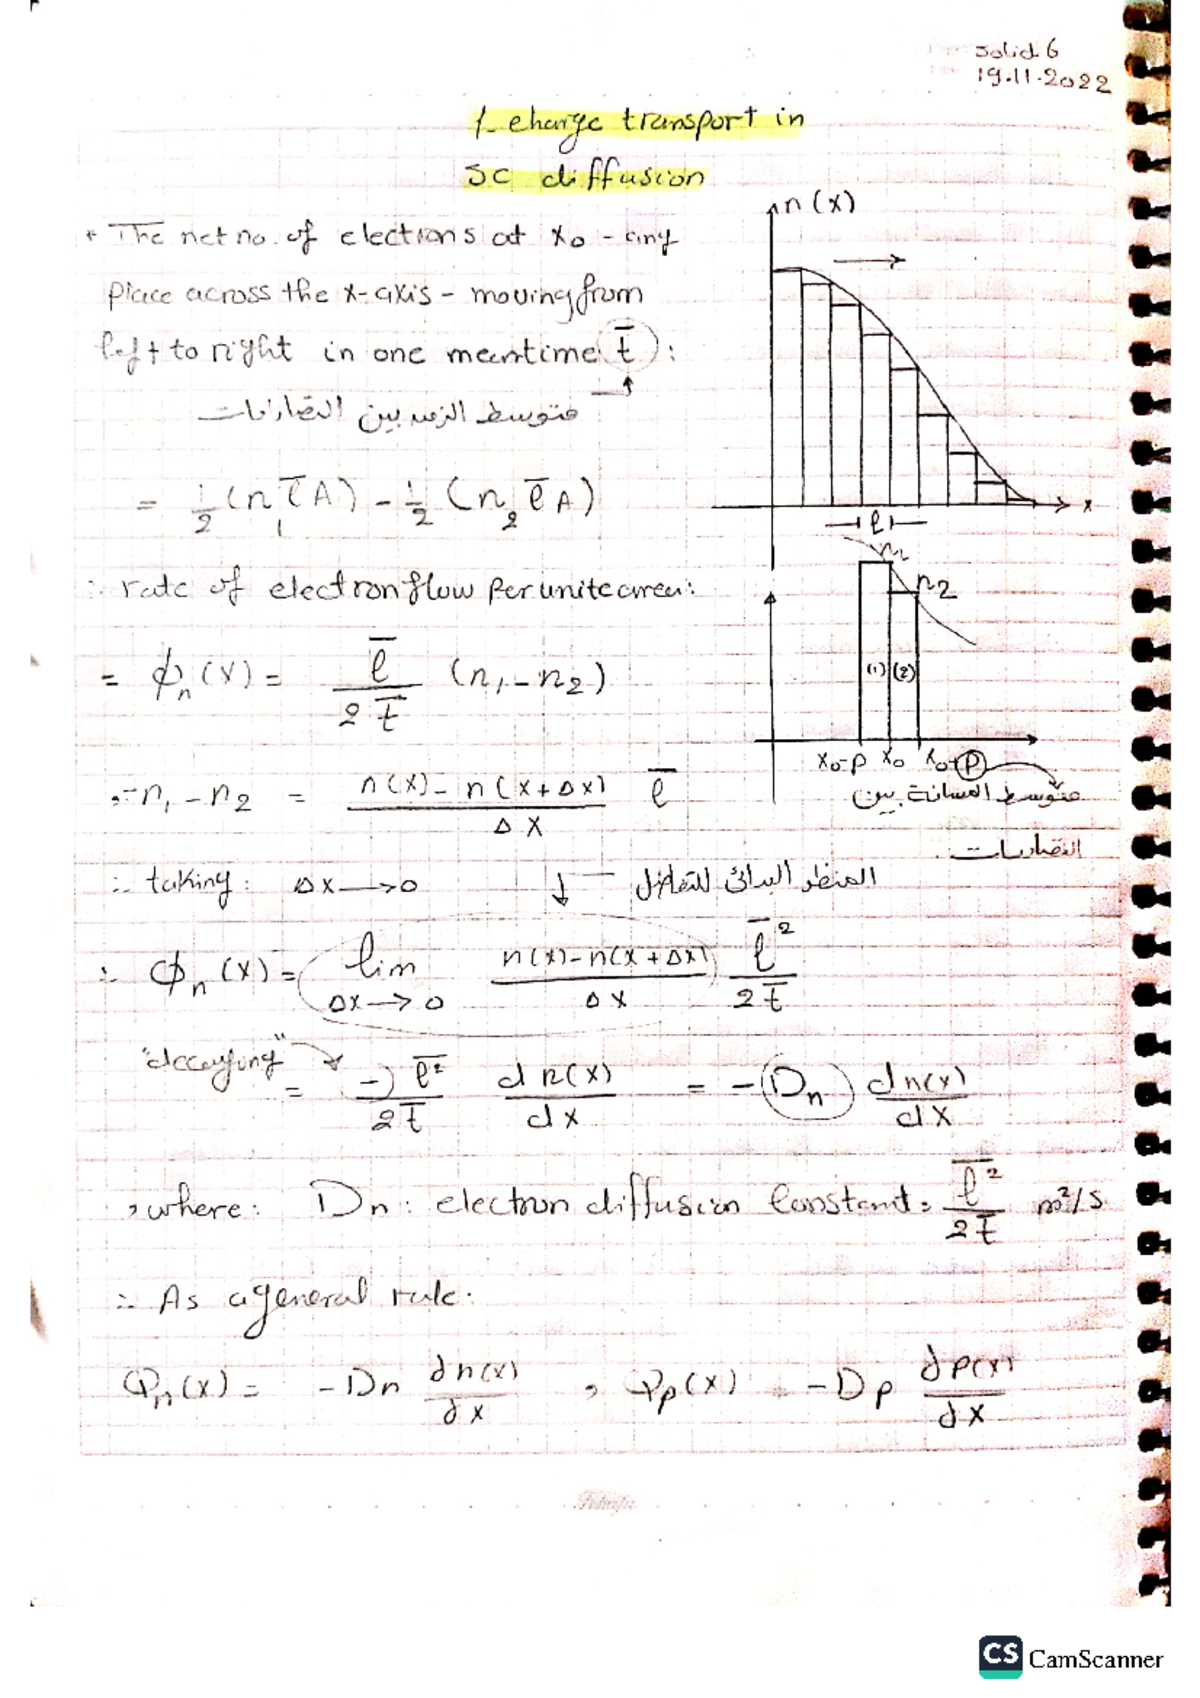 Solid 6
19.11.2022
1- charge transport in
SC diffusion
* The net no. of electrons at x₀ - any
place across the x-axis - moving from
left to right in one meantime t̄ :
متوسط الزمن بين التصادمات
= 1/2 (n₁ l̄ A) - 1/2 (n₂ l̄ A)
∴ rate of electron flow per unite area:
= ϕₙ(x) = l̄ / 2t̄ (n₁ - n₂)
∵ n₁ - n₂ = n(x) - n(x+Δx) / Δx l̄
∴ taking: Δx → 0 ↓ للتفاضل
∴ ϕₙ(x) = lim Δx → 0 n(x) - n(x+Δx) / Δx l̄² / 2t̄
"decaying"
= (-) l̄² / 2t̄ dn(x) / dx = - Dₙ dn(x) / dx
, where: Dn : electron diffusion Constant = l̄² / 2t̄ m²/s
∴ As a general rule:
φₙ(x) = -Dn dn(x) / dx , φp(x) = -Dp dp(x) / dx
n(x)
x
l
n₁
n₂
(1) (2)
x₀-l x₀ x₀+l
متوسط المسافة بين
التصادمات
CS CamScanner